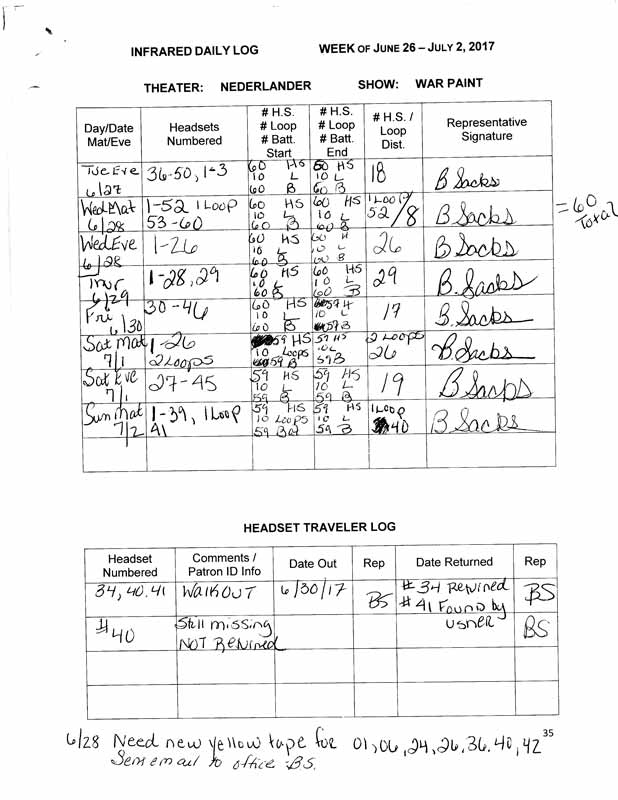 INFRARED DAILY LOG WEEK OF JUNE 26 – JULY 2, 2017
THEATER: NEDERLANDER SHOW: WAR PAINT
Day/Date Mat/Eve Headsets Numbered # H.S. # Loop # Batt. Start # H.S. # Loop # Batt. End # H.S. / Loop Dist. Representative Signature
Tue Eve 6/27 36-50, 1-3 60 HS 10 L 60 B 60 HS 10 L 60 B 18 B Sacks
Wed Mat 6/28 1-52 1 Loop 53-60 60 HS 10 L 60 B 60 HS 10 L 60 B 1 Loop 52/8 B Sacks = 60 Total
Wed Eve 6/28 1-26 60 HS 10 L 60 B 60 H 10 L 60 B 26 B Sacks
Thur 6/29 1-28, 29 60 HS 10 L 60 B 60 HS 10 L 60 B 29 B. Sacks
Fri 6/30 30-46 60 HS 10 L 60 B 57 H 10 L 57 B 17 B. Sacks
Sat Mat 7/1 1-26 2 Loops 59 HS 10 Loops 59 B 59 HS 10 L 59 B 2 Loops 26 B Sacks
Sat Eve 7/1 27-45 59 HS 10 L 59 B 59 HS 10 L 59 B 19 B Sacks
Sun Mat 7/2 1-39, 1 Loop 41 59 HS 10 Loops 59 Bat 59 HS 10 L 59 B 1 Loop 40 B Sacks
HEADSET TRAVELER LOG
Headset Numbered Comments / Patron ID Info Date Out Rep Date Returned Rep
34, 40. 41 Walkout 6/30/17 BS # 34 Returned # 41 Found by usher BS
# 40 Still missing NOT Returned BS
6/28 Need new yellow tape for 01, 06, 24, 26, 36. 40, 42
Sent email to office BS.
35